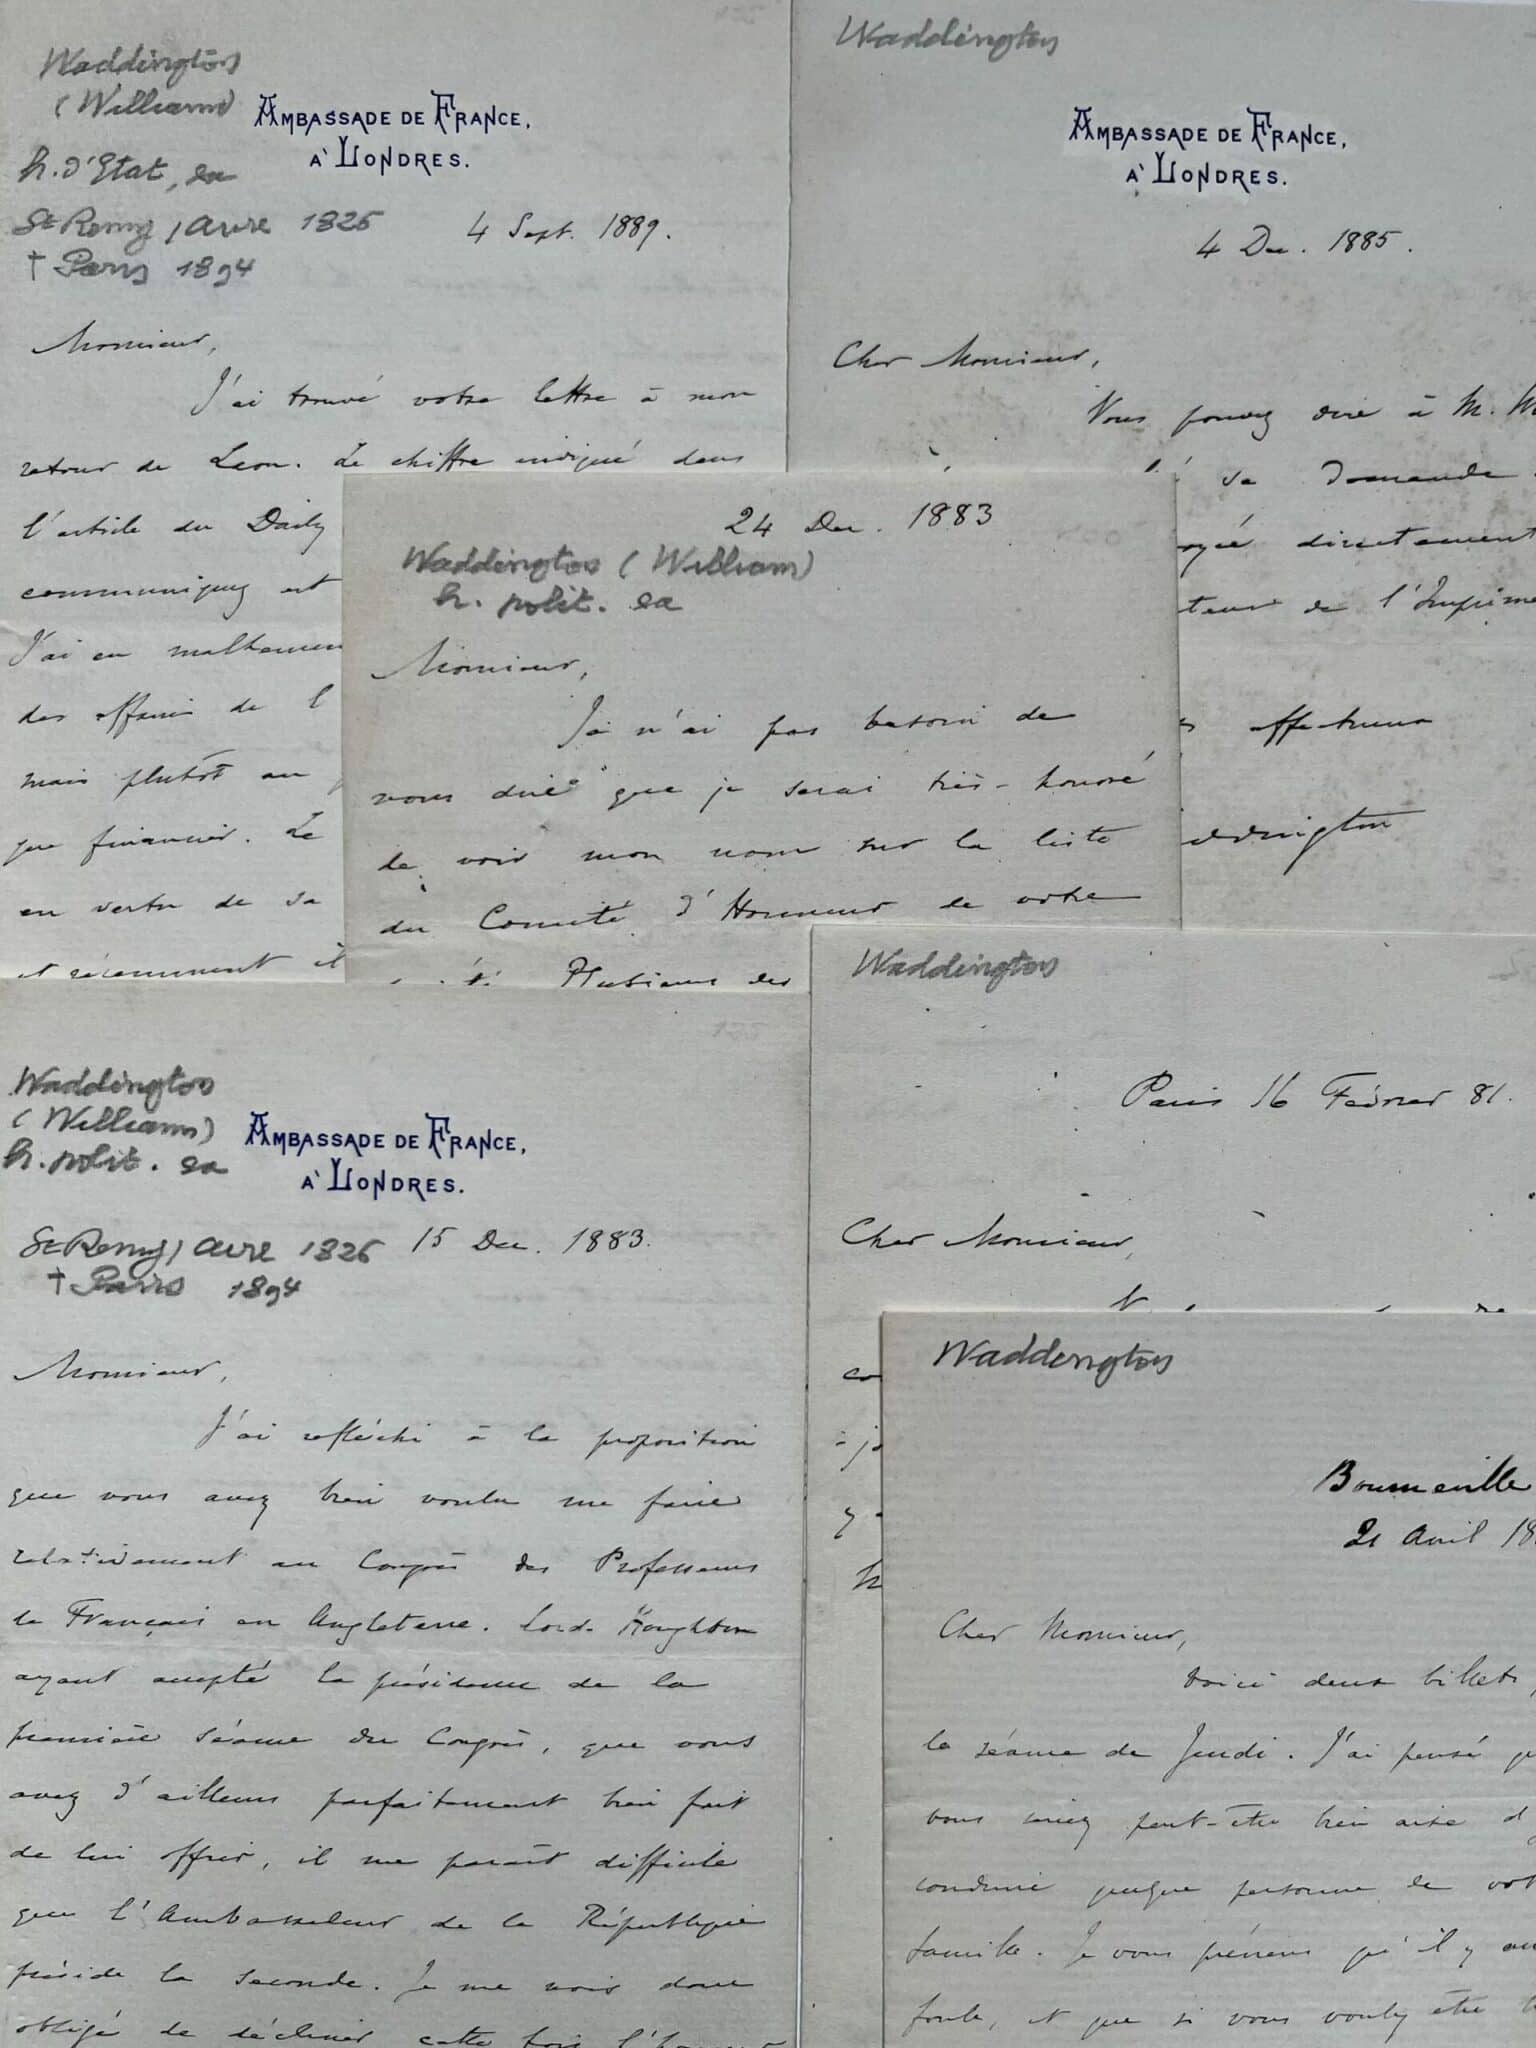 Waddington
(William)
h. d'Etat, ea
St Remy, Avre 1826
† Paris 1894
AMBASSADE DE FRANCE,
À LONDRES.
4 Sept. 1889.
Monsieur,
J'ai trouvé votre lettre à mon
retour de Laon. Le chiffre indiqué dans
l'article du Daily
communiquez est
J'ai eu malheureu
des affaires de l
mais plutôt au
que financier. Le
en vertu de sa
et récemment il
Waddington
AMBASSADE DE FRANCE,
À LONDRES.
4 Dec. 1885.
Cher Monsieur,
Vous pouvez dire à M.
sa demande
oyée directement
teur de l'Imprime
affectueux
ddington
24 Dec. 1883
Waddington (William)
h. polit. ea
Monsieur,
Je n'ai pas besoin de
vous dire que je serai très-honoré
de voir mon nom sur la liste
du Comité d'Honneur de votre
Plusieurs des
Waddington
(William)
h. polit. ea
St Remy, Avre 1826
† Paris 1894
AMBASSADE DE FRANCE,
À LONDRES.
15 Dec. 1883.
Monsieur,
J'ai réfléchi à la proposition
que vous avez bien voulu me faire
relativement au Congrès des Professeurs
de Français en Angleterre. Lord Houghton
ayant accepté la présidence de la
première séance du Congrès, que vous
avez d'ailleurs parfaitement bien fait
de lui offrir, il me paraît difficile
que l'Ambassadeur de la République
préside la seconde. Je me vois donc
obligé de décliner cette fois l'honneur
Waddington
Paris 16 Février 81.
Cher Monsieur,
Waddington
Bourneville
21 Avril 18
Cher Monsieur,
Voici deux billets,
la séance de Jeudi. J'ai pensé que
vous seriez peut-être bien aise d'y
conduire quelque personne de vot
famille. Je vous préviens qu'il y au
foule, et que si vous voulez être